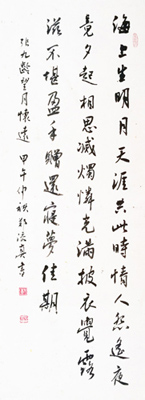 海上生明月天涯共此時情人怨遙夜
竟夕起相思滅燭憐光滿披衣覺露
滋不堪盈手贈還寢夢佳期
張九齡望月懷遠 甲午仲秋